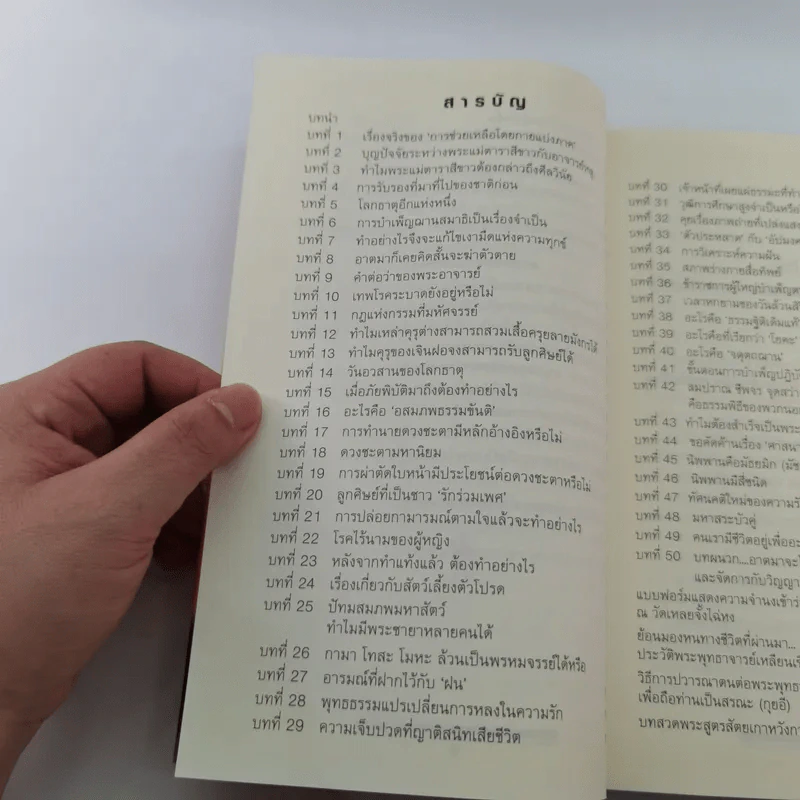 สารบัญ
บทนำ
บทที่ 1 เรื่องจริงของ 'การช่วยเหลือโดยกายแบ่งภาค'
บทที่ 2 บุญปัจจัยระหว่างพระแม่ตาราสีขาวกับอาจารย์
บทที่ 3 ทำไมพระแม่ตาราสีขาวต้องกล่าวถึงศีลวินัย
บทที่ 4 การรับรองที่มาที่ไปของชาติก่อน
บทที่ 5 โลกธาตุอีกแห่งหนึ่ง
บทที่ 6 การบำเพ็ญฌานสมาธิเป็นเรื่องจำเป็น
บทที่ 7 ทำอย่างไรจึงจะแก้ไขเงามืดแห่งความทุกข์
บทที่ 8 อาตมาก็เคยคิดสั้นจะฆ่าตัวตาย
บทที่ 9 คำต่อว่าของพระอาจารย์
บทที่ 10 เทพโรคระบาดยังอยู่หรือไม่
บทที่ 11 กฎแห่งกรรมที่มหัศจรรย์
บทที่ 12 ทำไมเหล่าคุรุต่างสามารถสวมเสื้อครุยลายมังกรได้
บทที่ 13 ทำไมคุรุของเจินฝอจงสามารถรับลูกศิษย์ได้
บทที่ 14 วันอวสานของโลกธาตุ
บทที่ 15 เมื่อภัยพิบัติมาถึงต้องทำอย่างไร
บทที่ 16 อะไรคือ 'อสมภพธรรมขันติ'
บทที่ 17 การทำนายดวงชะตามีหลักอ้างอิงหรือไม่
บทที่ 18 ดวงชะตามหานิยม
บทที่ 19 การผ่าตัดใบหน้ามีประโยชน์ต่อดวงชะตาหรือไม่
บทที่ 20 ลูกศิษย์ที่เป็นชาว 'รักร่วมเพศ'
บทที่ 21 การปล่อยกามารมณ์ตามใจแล้วจะทำอย่างไร
บทที่ 22 โรคไร้นามของผู้หญิง
บทที่ 23 หลังจากทำแท้งแล้ว ต้องทำอย่างไร
บทที่ 24 เรื่องเกี่ยวกับสัตว์เลี้ยงตัวโปรด
บทที่ 25 ปัทมสมภพมหาสัตว์
ทำไมมีพระชายาหลายคนได้
บทที่ 26 กามา โทสะ โมหะ ล้วนเป็นพรหมจรรย์ได้หรือ
บทที่ 27 อารมณ์ที่ฝากไว้กับ 'ฝน'
บทที่ 28 พุทธธรรมแปรเปลี่ยนการหลงในความรัก
บทที่ 29 ความเจ็บปวดที่ญาติสนิทเสียชีวิต
บทที่ 30 เจ้าหน้าที่เผยแผ่ธรรมะที่ทำ
บทที่ 31 วุฒิการศึกษาสูงจำเป็นหรือ
บทที่ 32 คุยเรื่องภาพถ่ายที่เปล่งแสง
บทที่ 33 'ตัวประหลาด' กับ 'อัปมงค
บทที่ 34 การวิเคราะห์ความฝัน
บทที่ 35 สภาพร่างกายสื่อทิพย์
บทที่ 36 ข้าราชการผู้ใหญ่บำเพ็ญ
บทที่ 37 เวลาหกยามของวันล้วน
บทที่ 38 อะไรคือ 'ธรรมฐิติเดิมแท้
บทที่ 39 อะไรคือที่เรียกว่า 'โยคะ'
บทที่ 40 อะไรคือ 'จตุตถฌาน'
บทที่ 41 ขั้นตอนการบำเพ็ญปฏิบั
บทที่ 42 สมปราณ ชีพจร จุด
คือธรรมพิธีของพวกนอก
บทที่ 43 ทำไมต้องสำเร็จเป็นพระ
บทที่ 44 ขอคัดค้านเรื่อง 'ศาสนา
บทที่ 45 นิพพานคือมัธยมิก (มัช
บทที่ 46 นิพพานมีสี่ชนิด
บทที่ 47 ทัศนคติใหม่ของความรั
บทที่ 48 มหาสระบัวคู่
บทที่ 49 คนเรามีชีวิตอยู่เพื่ออะ
บทที่ 50 บทผนวก...อาตมาจะไ
และจัดการกับวิญญา
แบบฟอร์มแสดงความจำนงเข้าร่
ณ วัดเหลยจั้งไฉ่หง
ย้อนมองหนทางชีวิตที่ผ่านมา...
ประวัติพระพุทธาจารย์เหลียนเซิ
วิธีการปวารณาตนต่อพระพุทธ
เพื่อถือท่านเป็นสรณะ (กุยอี)
บทสวดพระสูตรสัตยเกาหวังกา